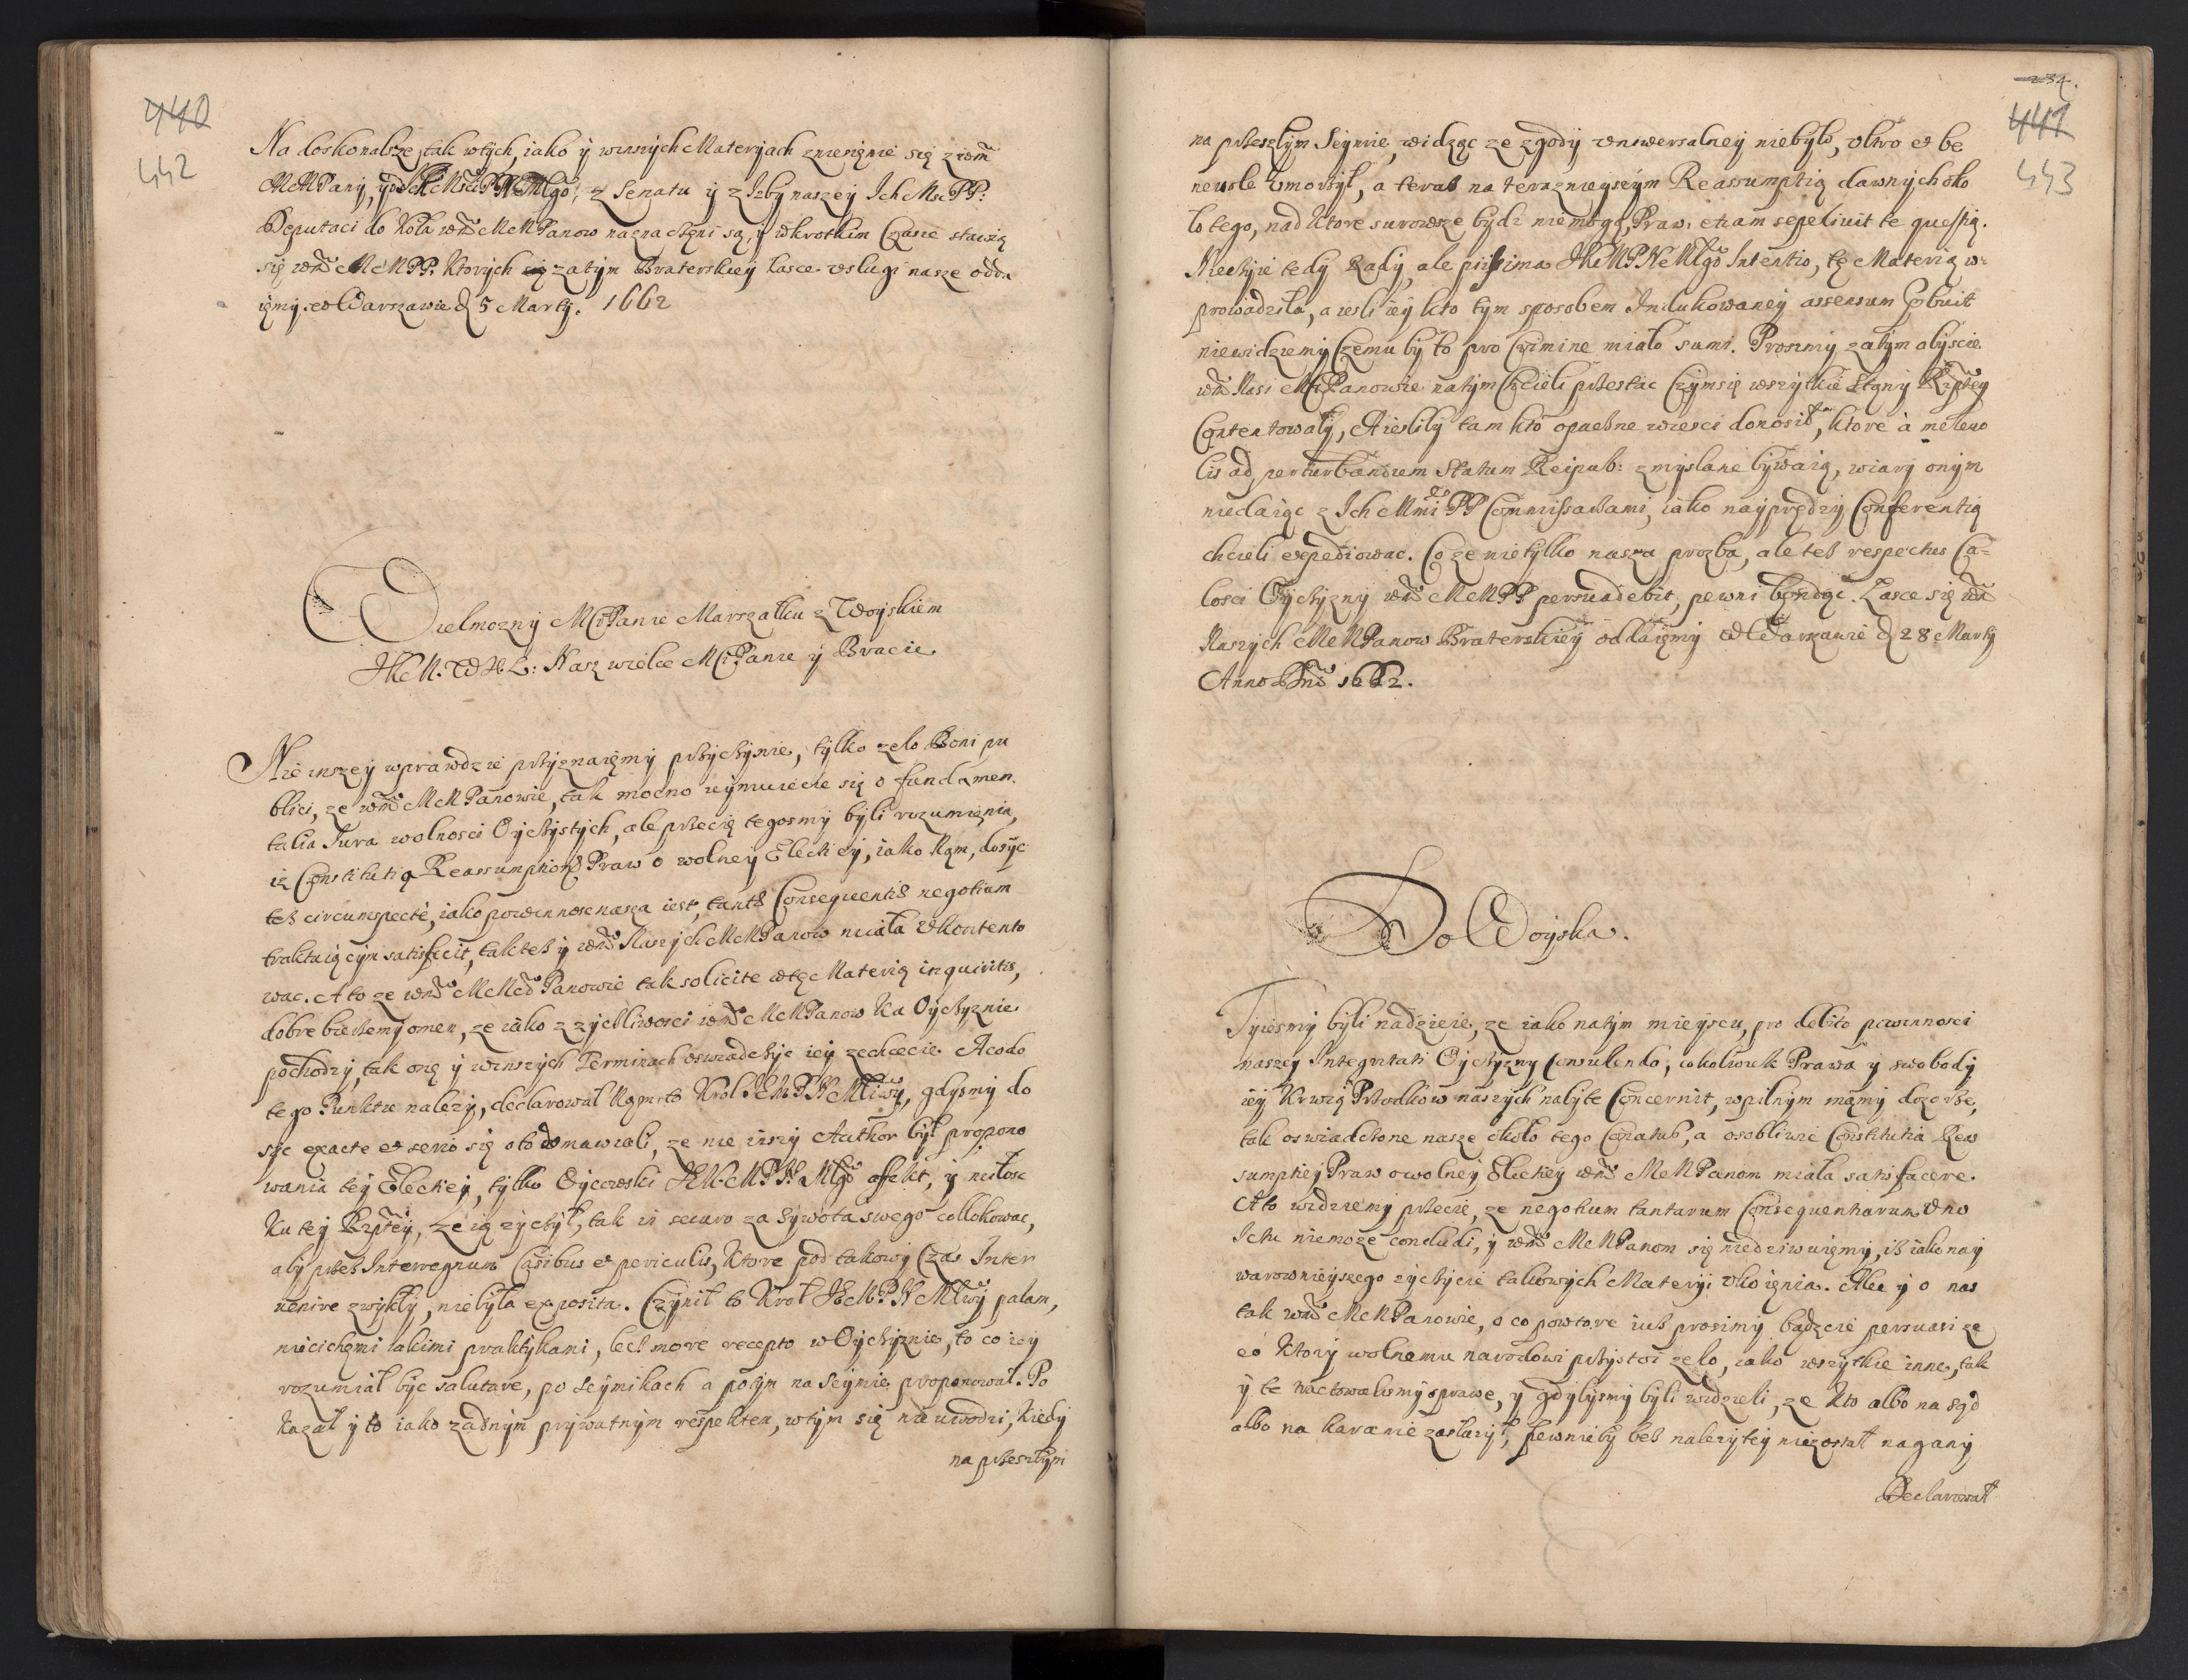 440
442
Na doskonalsze, tak w tych, iako ÿ winszych Materyach zniesienie się z wm̃
MMPany, ÿ od Ich Msci PP. z Senatu ÿ z Izby naszey Ich Msc PP:
Deputaci do Koła wm̃ MMPanow naznaczeni są, ÿ w krotkim Czasie stawią
się wm̃ MMPP. Ktorych zatym Braterskiey Lasce vslugi nasze odda
ięmy. w Warszawie d 5 Martij. 1662
Wielmozny MCi Panie Marszałku z Woyskiem
JKM. WXL: Nasz wielce MCi Panie ÿ Bracie.
Nie inszey wprawdzie przyznaięmy przyczynie, tylko zelo Boni pu
blici, ze wm̃ MMPanowie, tak mocno uymuiecie się o fundamen
talia Jura wolnosci Oyczystych, ale przecię tegosmy byli rozumięnia,
iz Constitutia Reassumptionis Praw o wolney Elecktiey, iako Nąm, dosyc
tez circumspectè, iako powinnosc nasza iest, tantæ Consequentiæ negotium
traktuiącym satisfecit, tak tez ÿ wm̃ Naszych MMPanow miała vkontento
wac. A to ze wm̃ MM Panowie tak solicite w tę Materią inquiritis,
dobre bierzemy omen, ze iako z zyczliwosci wm̃ MMPanow Ku Oyczyznie
pochodzi, tak onę ÿ w inszych Terminach oswiadczyc iey zechcecie. A co do
tego Punktu nalezy, declarował Nąm to Krol JEMPN Młwy, gdysmy do
syc exacte et serio się o to domawiali, ze nie inszy Author był propono
wania tey Elecktiey, tylko Oycowski JKMPN Młgo affekt, ÿ miłosc
Ku tey Rzptey, ze ią zyczył, tak in securo za zywota swego collokowac,
aby przez Interregnum Casibus et periculis, Ktore pod takowy Czas Inter
uenire zwykly, nie była exposita. Czynił to Krol JEMPN Młwy palam,
nie cichęmi iakimi praktykami, lecz more recepto w Oyczyznie, to co iey
rozumiał byc salutare, po Seymikach a potym na Seymie proponował. Po
kazał ÿ to iako zadnym prywatnym respektem, w tym się nie uwodzi, kiedy
na przeszłym
234.
441
443
na przeszłym Seymie, widząc ze zgody vniwersalney niebyło, vltro et be
neuole vmorzył, a teraz na teraznieyszym Reassumptią dawnych oko
lo tego, nad Ktore surowsze bydz niemogą, Praw, etiam sepeliuit te questią.
Nie czyie tedy Rady, ale piissima JKMPN Młgo Intentio, tę Materią w=
prowadziła, a iesli iey kto tym sposobem Indukowaney assensum præbuit
niewidziemy Czemu by to pro Crimine miało sumi. Prosimy zatym abyscie
wm̃ Nasi MCi Panowie na tym Chcieli przestac Czym się wszytkie Stany Rzptey
Contentowały, A iesliby tam kto opaczne wiesci donosił, ktore à maleuo
lis ad perturbandum Statum Reipub: zmyslane bywaią, wiary onym
niedaiąc z Ich Mmi PP Commissarzami, iako nayprędzy Conferentią
chcieli expediowac. Co ze nietylko nasza prozba, ale tez respectus Ca=
losci Oyczyzny wm̃ MMPP persuadebit, pewni będąc. Lasce się wm̃
Naszych MMPanow Braterskiey oddaięmy w Warszawie d 28 Martij
Anno Dni 1662.
Do Woyska.
Tyiesmy byli nadzieie, ze iako na tym mieyscu, pro debito powinnosci
naszey Integritati Oyczyzny Consulendo, cokolwiek Prawa ÿ swobody
iey Krwią Przodkow naszych nabyte Concernit, w pilnym mamy dozorze,
tak oswiadczone nasze około tego Conatus, a osobliwie Constitutia Reas
sumptiey Praw o wolney Elecktiey wm̃ MMPanom miała satisfacere.
A to widziemy przecie, ze negotium tantarum Consequentiarum vno
Ictu niemoze concludi, ÿ wm̃ MMPanom się niedziwuięmy, iz iako nay
warownieyszego zyczycie takowych Materyi vkoięnia. Ale ÿ o nas
tak wm̃ MMPanowie, o co powtore iuz prosimy bądzcie persuasi ze
eo Ktory wolnemu narodowi przystoi zelo, iako wszytkie inne, tak
ÿ te tractowalismy sprawe, ÿ gdybysmy byli widzieli, ze kto albo na sąd
albo na karanie zasłuzył, pewnieby bez nalezytey niezostał nagany
Declarował